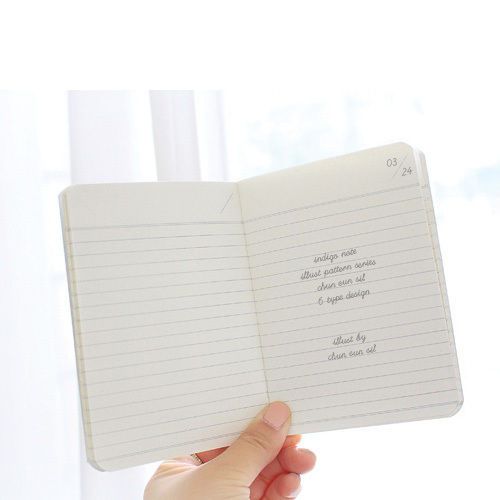 03/24
indigo note
illust pattern series
chun eun sil
6 type design
illust by
chun eun sil